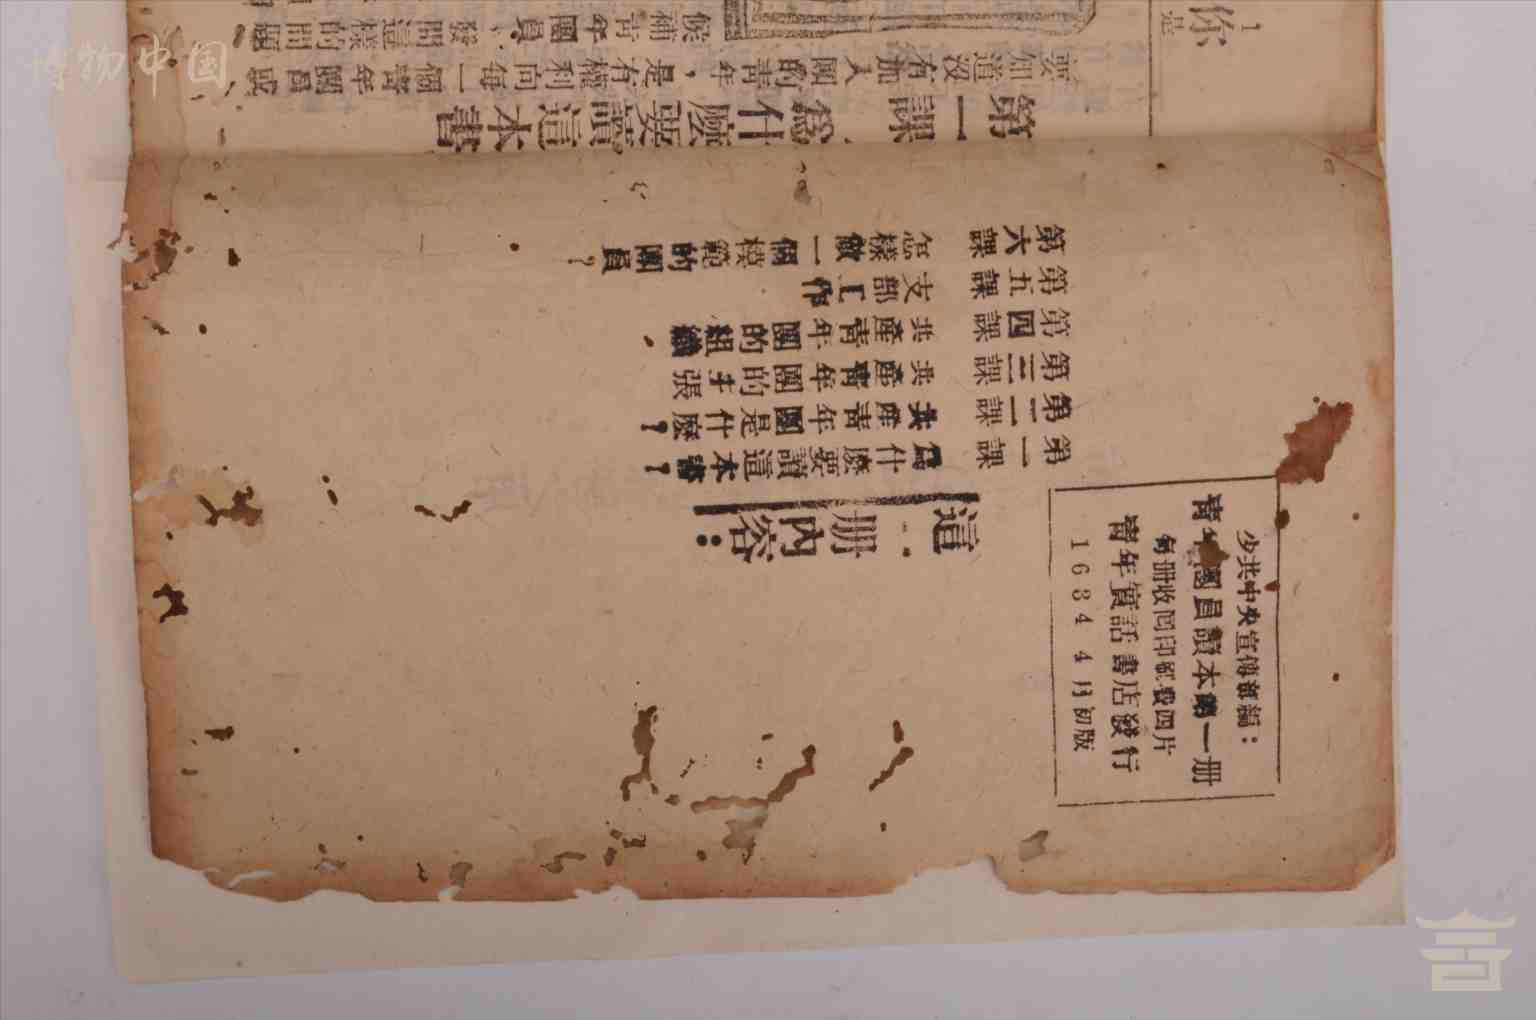 少共中央宣傳部編：
青年團員讀本第一册
每册收囘印紙費四片
青年實話書店發行
1634 4月初版
這一册內容：
第一課 爲什麽要讀這本書？
第二課 共產青年團是什麽？
第三課 共產青年團的主張
第四課 共產青年團的組織
第五課 支部工作
第六課 怎樣做一個模範的團員？
第一課 爲什麽要讀這本書
要知道沒有加入團的青年，是有權利向每一個靑年團員或
候補靑年團員，發問這樣的問題
1
你是
博物中国